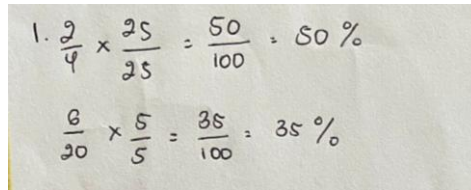 1. 2/4 × 25/25 = 50/100 = 50 %
6/20 × 5/5 = 35/100 = 35 %